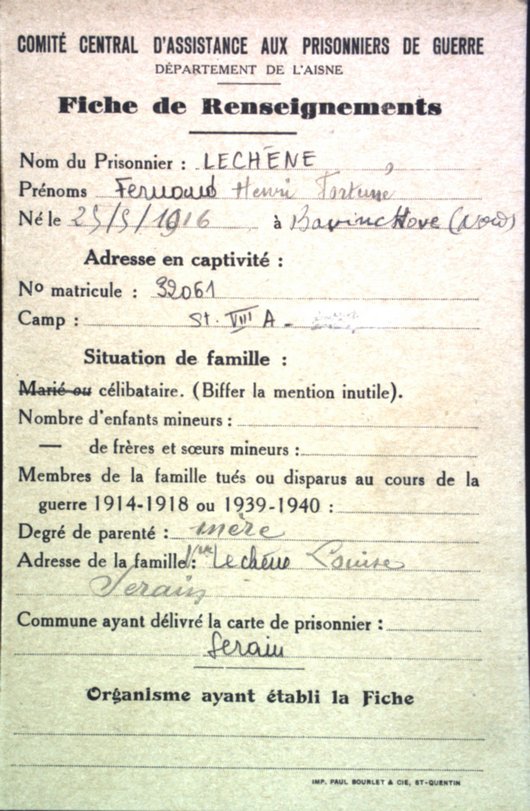 COMITÉ CENTRAL D'ASSISTANCE AUX PRISONNIERS DE GUERRE
DÉPARTEMENT DE L'AISNE
Fiche de Renseignements
Nom du Prisonnier : LECHÊNE
Prénoms Fernand Henri Fortuné
Né le 25/5/1916 à Bavinchove (Nord)
Adresse en captivité :
No matricule : 32061
Camp : St. VIII A -
Situation de famille :
Marié ou célibataire. (Biffer la mention inutile).
Nombre d'enfants mineurs :
— de frères et sœurs mineurs :
Membres de la famille tués ou disparus au cours de la
guerre 1914-1918 ou 1939-1940 :
Degré de parenté : mère
Adresse de la famille : Vve Lechêne Louise
Serain
Commune ayant délivré la carte de prisonnier :
Serain
Organisme ayant établi la Fiche
IMP. PAUL BOURLET & CIE, ST-QUENTIN